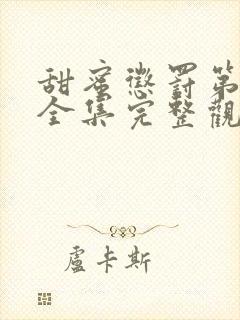 甜蜜懲罰第
全集完整觀
盧卡斯